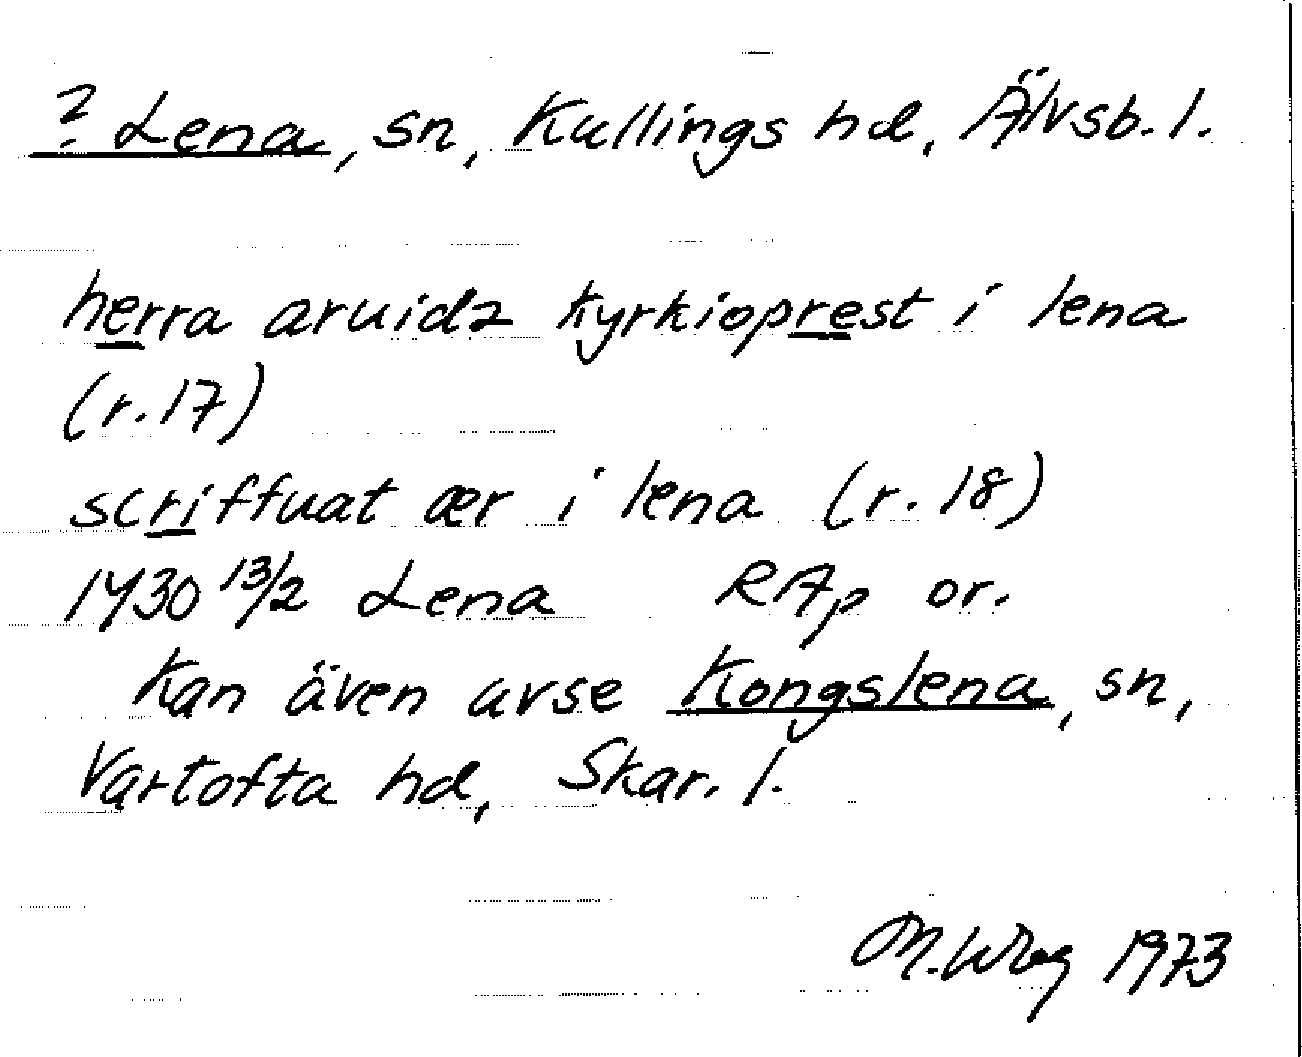 ? Lena, sn, Kullings hd, Älvsb. l.
herra aruidz kyrkioprest i lena
(r. 17)
scriffuat ær i lena (r. 18)
1430 13/2 Lena RAp or.
Kan även avse Kongslena, sn,
Vartofta hd, Skar. l.
M. 1973